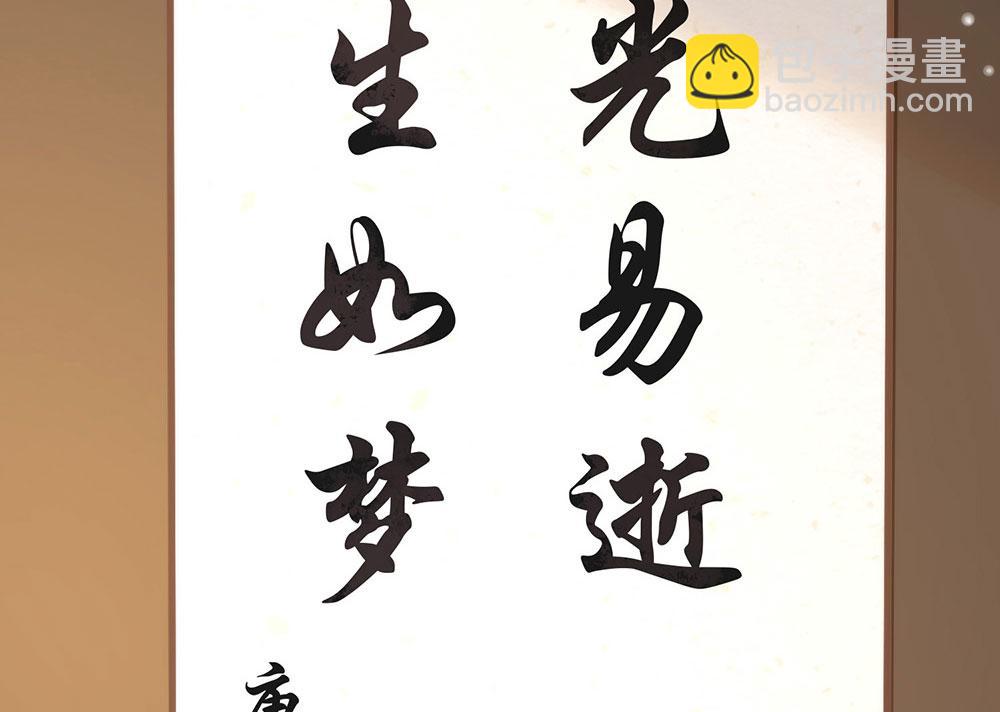 光易逝
生如梦
包子漫畫
baozimh.com